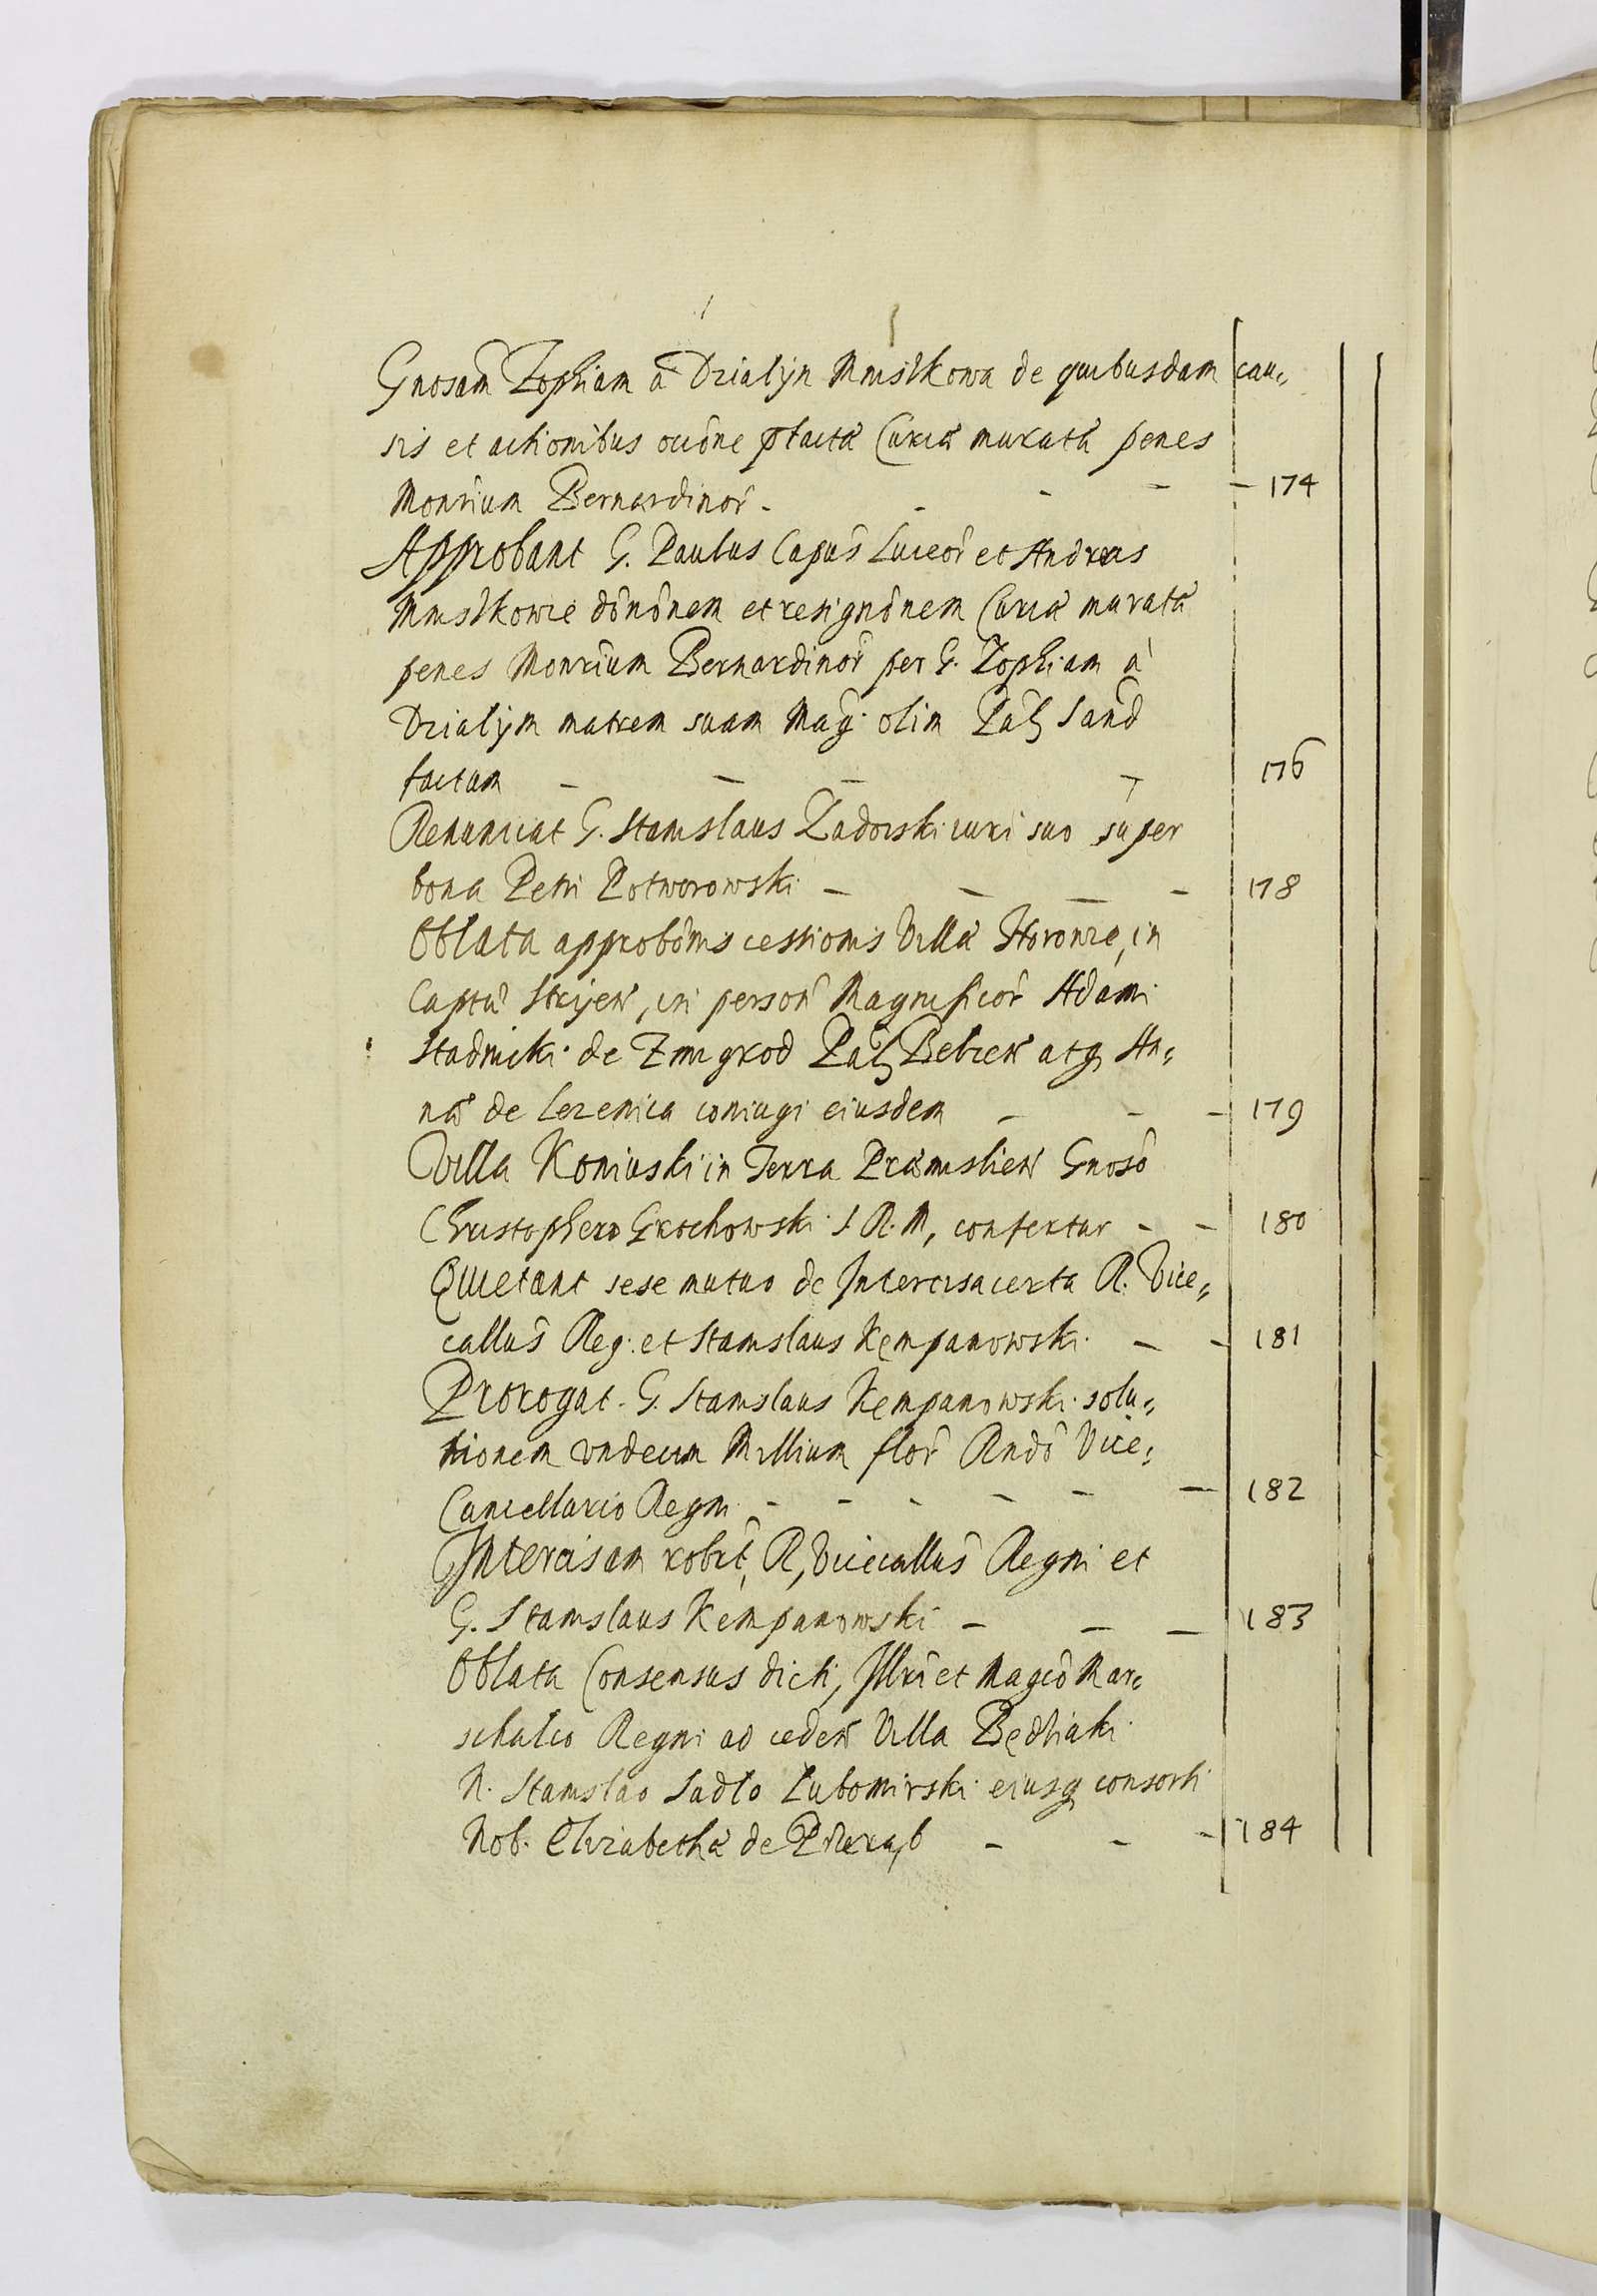 Gnosam̃ Zophiam à Dzialyn Mniszkowa de quibusdam cau-
sis et actionibus occōne p̱facta Curia murata penes
Monrium Bernardinor̃ - - - - 174
Approbant G. Paulus Capũs Luceor̃ et Andreas
Mniszkowie dōnōnem et resignōnem Curia murata
penes Monrium Bernardinor̃ per G. Zophiam à
Dzialyn matrem suam Mag. olim Pal Sand̃
factam - - - - 176
Renunciat G. Stanislaus Zadorski iuri suo super
bona Petri Potworowski - - - - 178
Oblata approbōnis cessionis Villa Horonie, in
Captũ Stryen̄, in person̄ Magnificor̃ Adami
Stadnicki de Zmigrod Pal Belzen̄ atq An-
na de Lezenica coniugi eiusdem - - - 179
Villa Koniuski in Terra Præmislien̄ Gnosō
Christophero Grochowski S R. M, confertur - - 180
Quietant sese mutuo de Intercisa certa R. Vice-
callũs Reg. et Stanislaus Kempanowski - - 181
Prorogat G. Stanislaus Kempanowski solu-
tionem undecim Millium flor̃ Rndō Vice-
Cancellario Regni - - - - - - 182
Intercisam robrt, R, Vicecallũs Regni et
G. Stanislaus Kempanowski - - - 183
Oblata Consensus dicti, Illri et Magcō Mar-
schalco Regni ad ceden̄ Villa Będliaki
N. Stanislao Sadlo Lubomirski eiusq consorti
Nob. Elizabetha de - - - 184